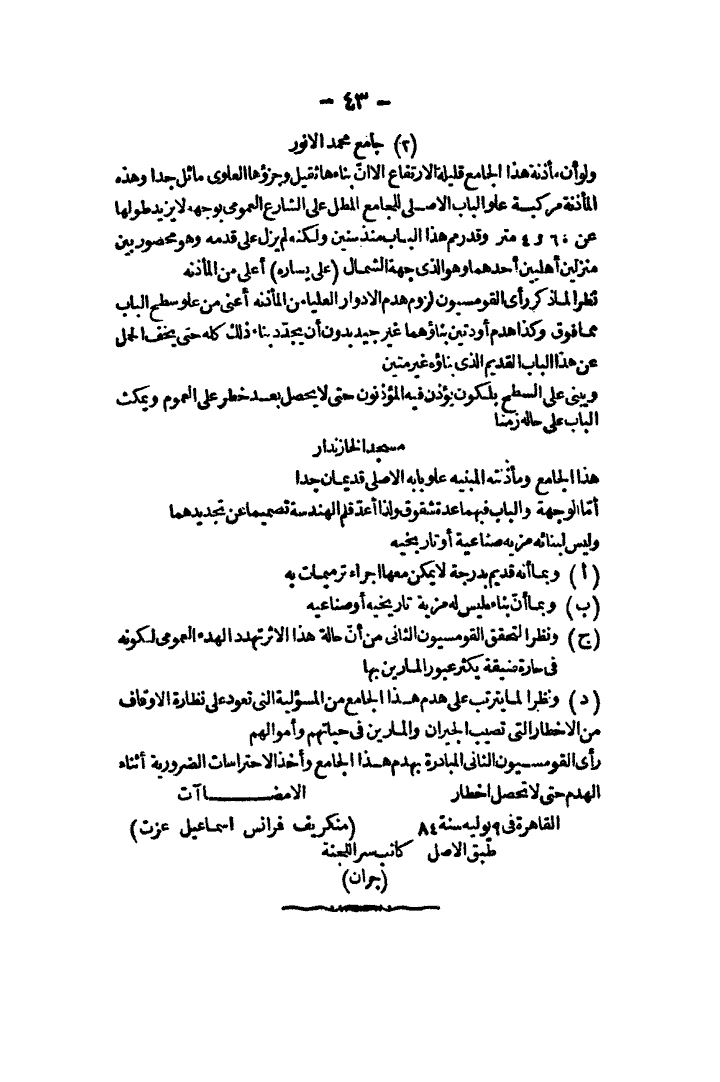 - ٤٣ -
(٢) جامع محمد الانور
ولو أن مأذنة هذا الجامع قليلة الارتفاع الا انّ بناءها ثقيل وجزؤها العلوى مائل جدا وهذه
المأذنة مركبة علو الباب الاصلى للجامع المطل على الشارع العمومى بوجهه لا يزيد طولها
عن ٦٠ و ٤ متر وقد رم هذا الباب منذ سنين ولكنه لم يزل على قدمه وهو محصور بين
منزلين أهليين أحدهما وهو الذى جهة الشمال (على يساره) أعلى من المأذنه
نظر الماذكر رأى القومسيون لزوم هدم الادوار العليا من المأذنه أعنى من علو سطح الباب
مما فوق وكذا هدم أودتين بناؤهما غير جيد بدون أن يجدّد بناء ذلك كله حتى يخف الحمل
عن هذا الباب القديم الذى بناؤه غير متين
ويبنى على السطح بلكون يؤذن فيه المؤذنون حتى لا يحصل بعد خطر على العموم ويمكث
الباب على حاله زمنا
مسجد الخازندار
هذا الجامع ومأذنته المبنيه علو بابه الاصلى قديمان جدا
أمّا الوجهة والباب فبهما عدة شقوق ولذا أعدّ قلم الهندسة تصميما عن تجديدهما
وليس لبنائه مزيه صناعية أو تاريخيه
(أ) وبما أنه قديم بدرجة لا يمكن معها اجراء ترميمات به
(ب) وبما أنّ بناءه ليس له مزية تاريخيه أو صناعيه
(ج) ونظرا لتحقق القومسيون الثانى من أنّ حالة هذا الاثر تهدد الهدء العمومى لكونه
فى حارة ضيقة يكثر عبور المارين بها
(د) ونظرا لما يترتب على هدم هذا الجامع من المسؤلية التى تعود على نظارة الاوقاف
من الاخطار التى تصيب الجيران والمارين فى حياتهم وأموالهم
رأى القومسيون الثانى المبادرة بهدم هذا الجامع وأخذ الاحتراسات الضرورية أثناء
الهدم حتى لا تحصل اخطار الامضاآت
القاهرة فى ٩ يوليه سنة ٨٤ (منكريف فرانس اسماعيل عزت)
طبق الاصل كاتب سر اللجنة
(جران)